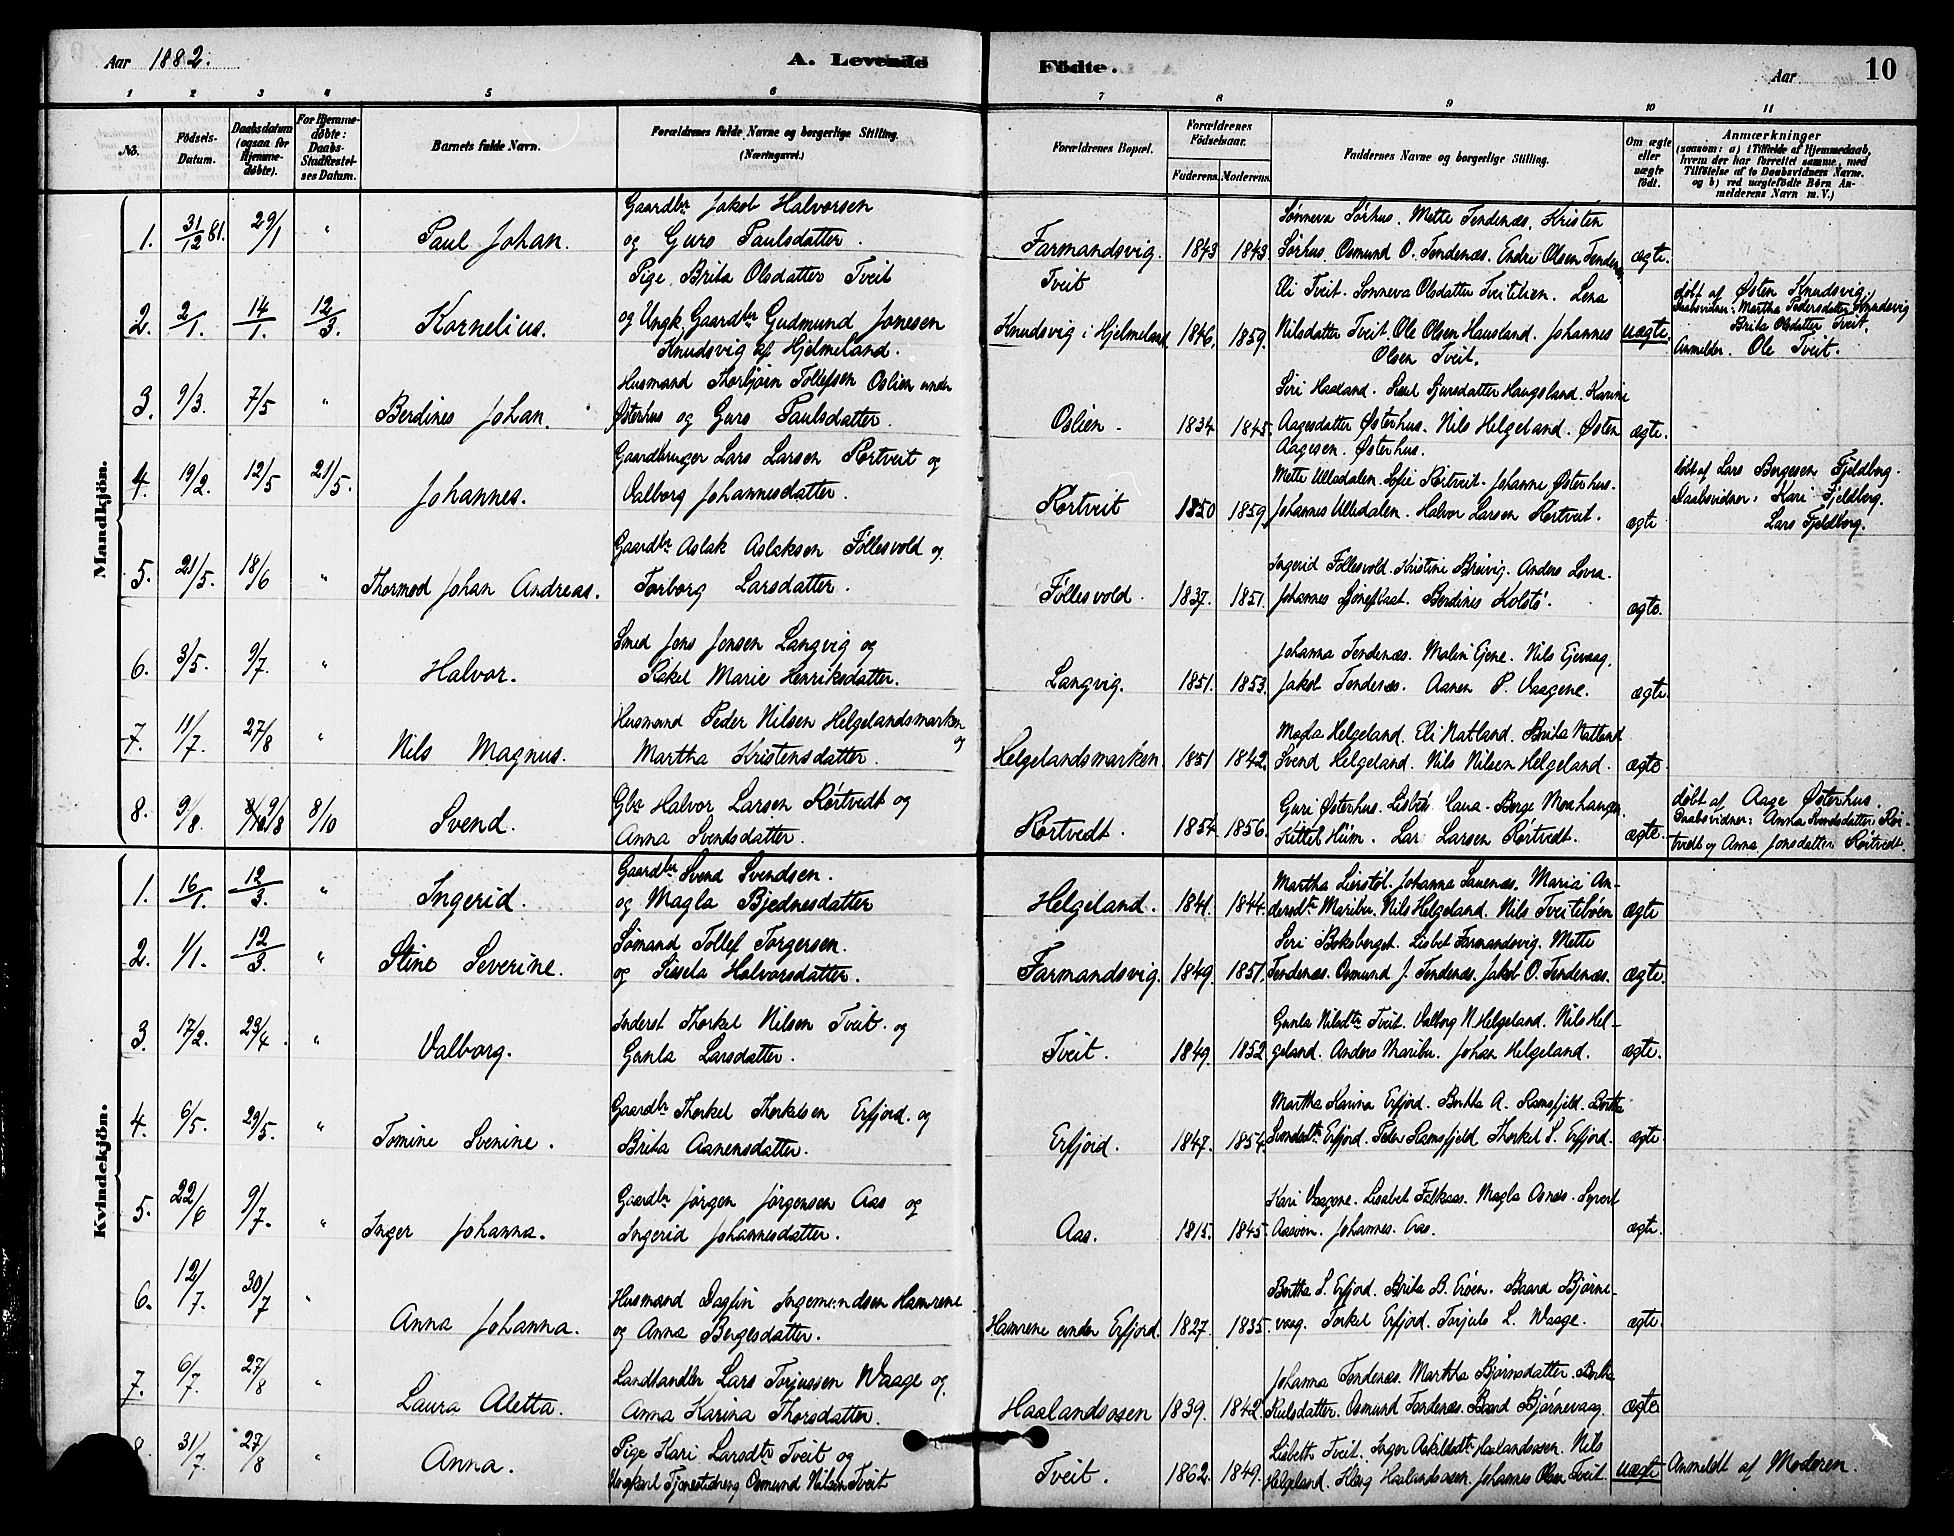 Aar 1882.
A. Levende Fødte.
Aar
10
1 2 3 4 5 6 7 8 9 10 11
No. Födsels-Datum. Daabsdatum (ogsaa for Hjemme-döbte). For Hjemme-döbte: Daabs-Stadfæstelses Datum. Barnets fulde Navn. Forældrenes fulde Navne og borgerlige Stilling. (Næringsvei.) Forældrenes Bopæl. Forældrenes Födselsaar. Faderens. Moderens. Faddernes Navne og borgerlige Stilling. Om ægte eller uægte födt. Anmærkninger (saasom: a) i Tilfælde af Hjemmedaab, hvem der har forrettet samme, med Tilföielse af to Daabsvidners Navne. og b) ved uægtefödte Börn Anmelderens Navn m. V.)
Mandkjön.
Gaardbr Jakob Halvorsen
Sønneva Sørhus. Mette Tendenæs. Kristen
1. 31/12 81. 29/1 " Paul Johan. og Guro Paulsdatter. Farmandsvig. 1843 1843. Sørhus. Osmund O. Tendenæs. Endre Olsen Tendenæs ægte.
Pige Brita Olsdatter Tveit Tveit Eli Tveit. Sønneva Olsdatter Tveitelien. Lena døbt af Østen Knudsvig.
Daabsvidner: Martha Pedersdatter Knudsvig
2. 2/1. 14/1. 12/3. Kornelius. og Ungk. Gaardbr Gudmund Jonesen Knudsvig i Hjelmeland 1846. 1859. Nilsdatter Tveit. Ole Olsen Hausland. Johannes uægte. Brita Olsdatter Tveit.
Knudsvig af Hjelmeland. Olsen Tveit. Anmelder. Ole Tveit.
Husmand Thorbjørn Tollefsen Oslien under Siri Haaland. Sjursdatter Haugeland. Karine
3. 9/3. 7/5 " Berdines Johan. Østerhus og Guro Paulsdatter. Oslien. 1834 1845. Aagesdatter Østerhus. Nils Helgeland. Østen ægte.
Aagesen. Østerhus.
Gaardbruger Lars Larsen Rørtveit og Mette Ulladalen. Sofie Rørtveit. Johanne Østerhus. døbt af Lars Børgesen Fjeldberg.
4. 19/2. 12/5 21/5. Johannes. Valborg Johannesdatter. Rørtveit 1850 1859. Johannes Ulladalen. Halvor Larsen Rørtveit. ægte Daabsvidner: Kari Fjeldberg.
Lars Fjeldberg.
Gaardbr Aslak Aslaksen Føllesvold og Ingerid Føllesvold. Kristine Breivig. Anders Lovra.
5. 21/5. 18/6 " Thormod Johan Andreas. Torborg Larsdatter. Føllesvold. 1837. 1851. Johannes Berdines Kolstø. ægte.
Smed Jens Jonsen Langvig og Johanna Tendenæs. Malin Ejene. Nils Ejevaag.
6. 3/5. 9/7. " Halvor. Rakel Marie Henriksdatter. Langvig. 1851. 1853. Jakob Tendenæs. Aanen P. Vaagene. ægte.
Husmand Peder Nilsen Helgelandsmarken og Magla Helgeland. Eli Natland. Brita Natland
7. 11/7. 27/8 " Nils Magnus. Martha Kristensdatter. Helgelandsmarken. 1851 1842. Svend Helgeland. Nils Nilsen Helgeland. ægte.
Gbr Halvor Larsen Rørtvedt og Guri Østerhus. Lisbet Børge Moehaugen døbt af Aage Østerhus.
Daabsvidner: Anna Svendsdatter Rør-
8. 9/8. 9/8 8/10 Svend. Anna Svendsdatter. Rørtvedt. 1854 1856. Kittel Hüm. Lars Larsen Rørtvedt. ægte. tvedt og Anna Jonsdatter Rørtvedt.
Kvindekjön.
Gaardbr Svend Svendsen. Martha Lierstøl. Johanna Sauenæs. Maria An-
1. 16/1. 12/3. " Ingerid. og Magla Bjednesdatter Helgeland. 1841. 1844. dersdtr Maribu. Nils Helgeland. Nils Tveitebøen ægte
Sømand Tollef Torgersen. Seri Boksberget. Lisbet Farmandsvig. Mette
2. 1/1. 12/3. " Stine Severine. og Sissela Halvorsdatter. Farmandsvig. 1849. 1851. Tendenæs. Osmund J. Tendenæs. Jakob O. Tendenæs. ægte.
Inderst Thorkel Nilsen Tveit. og Gunla Nilsdtr Tveit. Valborg N. Helgeland. Nils Hel-
3. 17/2. 23/4. " Valborg. Gunla Larsdatter. Tveit. 1849. 1852. geland. Anders Maribu. Johan Helgeland. ægte.
Gaardbr Thorkel Thorkelsen Erfjord. og Martha Karina Erfjord. Bertha A. Ramsfjeld. Bertha
4. 6/5. 29/5. " Tomine Svenine. Brita Aanensdatter. Erfjord. 1847. 1854. Svendsdtr Erfjord. Peder Ramsfjeld. Thorkel S. Erfjord. ægte
Gaardbr Jørgen Jørgensen Aas og Kari Vaagene. Lisabet Falkaas. Magla Osnæs. Syvert
5. 22/6 9/7. " Inger Johanna. Ingerid Johannesdatter. Aas. 1815. 1845. Aasvom. Johannes. Aas. ægte.
Husmand Dagfin Ingemundsen Hamrene Bertha S. Erfjord. Brita B. Erøen. Baard Bjørne-
6. 12/7. 30/7 " Anna Johanna. og Anna Børgesdatter. Hamrene under Erfjord. 1827. 1835. vaag. Torkel Erfjord. Torjuls L. Waage. ægte.
Landhandler Lars Torjussen Waage og Johanna Tendenæs. Martha Bjørnsdatter. Bertha
7. 6/7. 27/8 " Laura Aletta. Anna Karina Thorsdatter. Haalandsosen 1839. 1842. Osmund Tendenæs. Baard Bjørnevaag. ægte
Pige Kari Larsdtr Tveit og Lisbeth Tveit. Inger Askildsdtr Haalandsosen. Nils
8. 31/7. 27/8 " Anna. Ungkarl Tjenestedreng Osmund Nilsen Tveit Tveit. 1862. 1849. Helgeland. Haalandsosen. Johannes Olsen Tveit. uægte Anmeldt af Moderen.